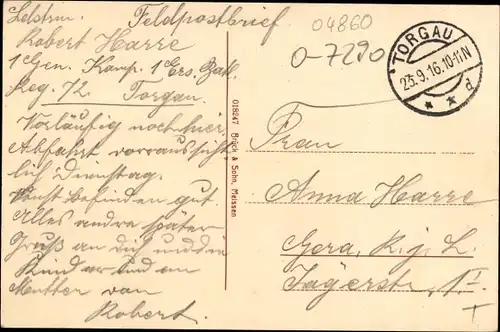 Feldpostbrief
Robert Harre
1 Gen. Komp. 1 Ers. Batl.
Reg. 72 Torgau.
Vorläufig noch hier,
Abfahrt vorraussicht,
lich Dienstag.
Sonst befinden gut.
Alles andre später
Gruß an dich und den
Kindern und an
Mutter von
Robert.
018247 Brück & Sohn, Meissen
04860
0-7290
TORGAU
23.9.16.10-11N
* * d
Frau
Anna Harre
Gera, R. j. L.
Jägerstr. 1 I